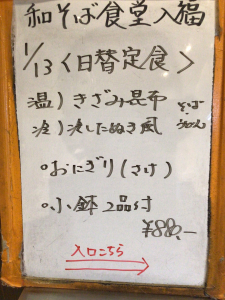 和そば食堂入福
1/13〈日替定食〉
温）きざみ昆布
冷）冷したぬき風
そば
うどん
○おにぎり（さけ）
○小鉢2品付
¥880.-
入口こちら